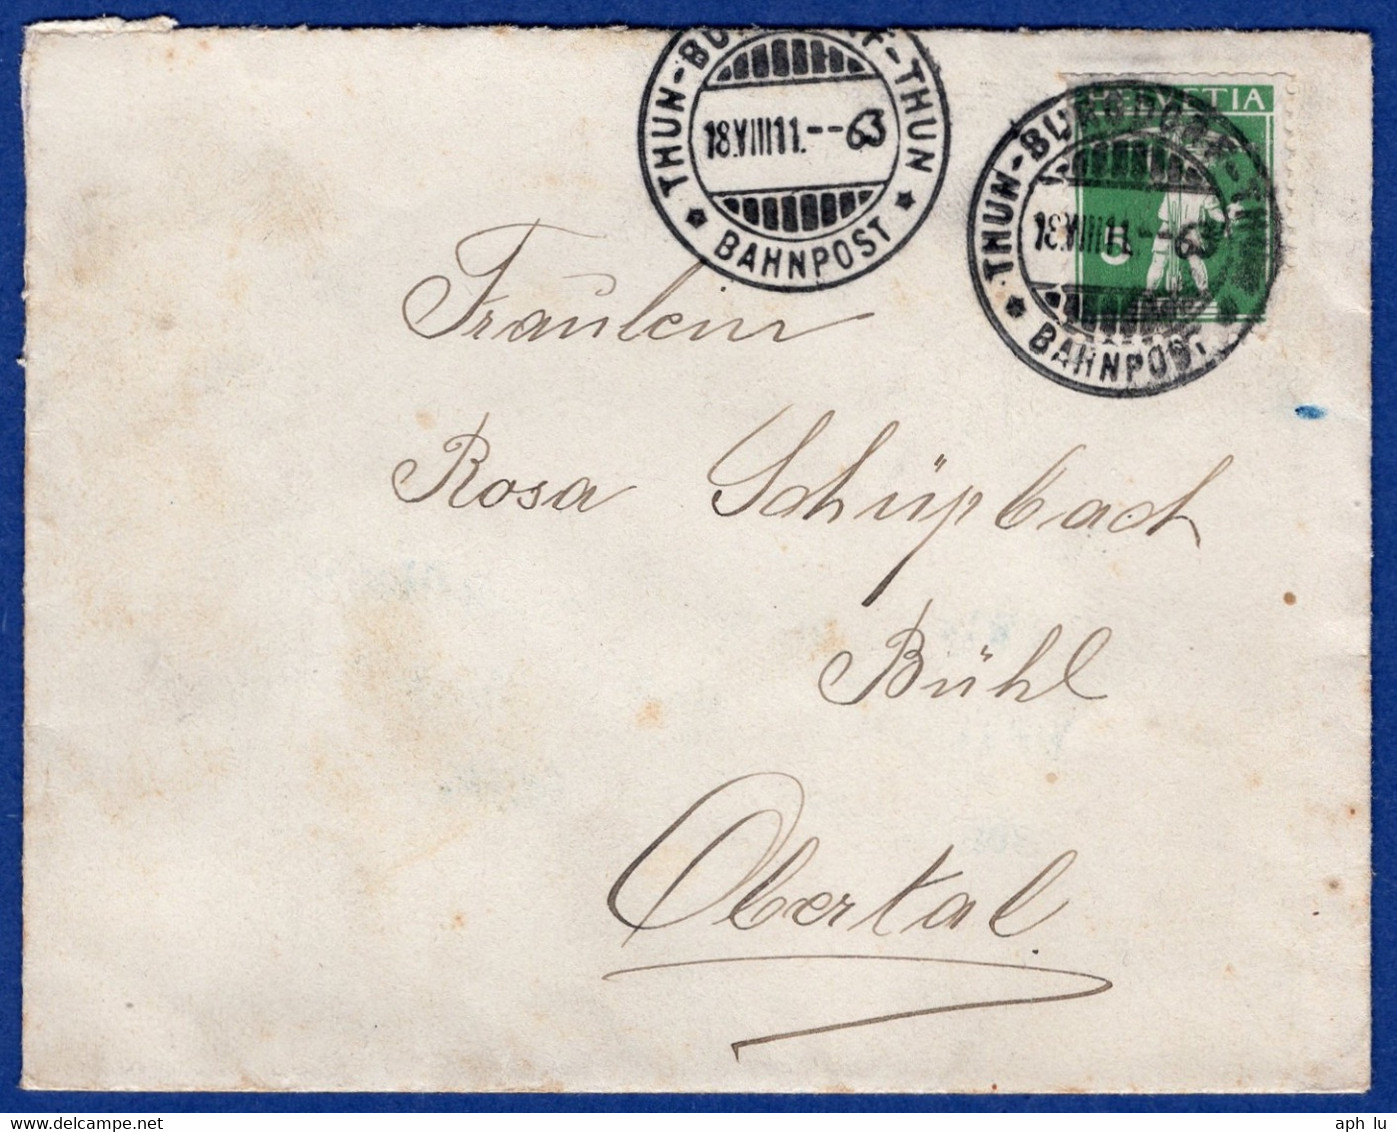 THUN-BURGDORF-THUN
18.VIII11.--63
* BAHNPOST *
HELVETIA
5
THUN-BURGDORF-THUN
18.VIII11.--63
* BAHNPOST *
Fräulein
Rosa Schüpbach
Bühl
Obertal.
delcampe.net
aph_lu